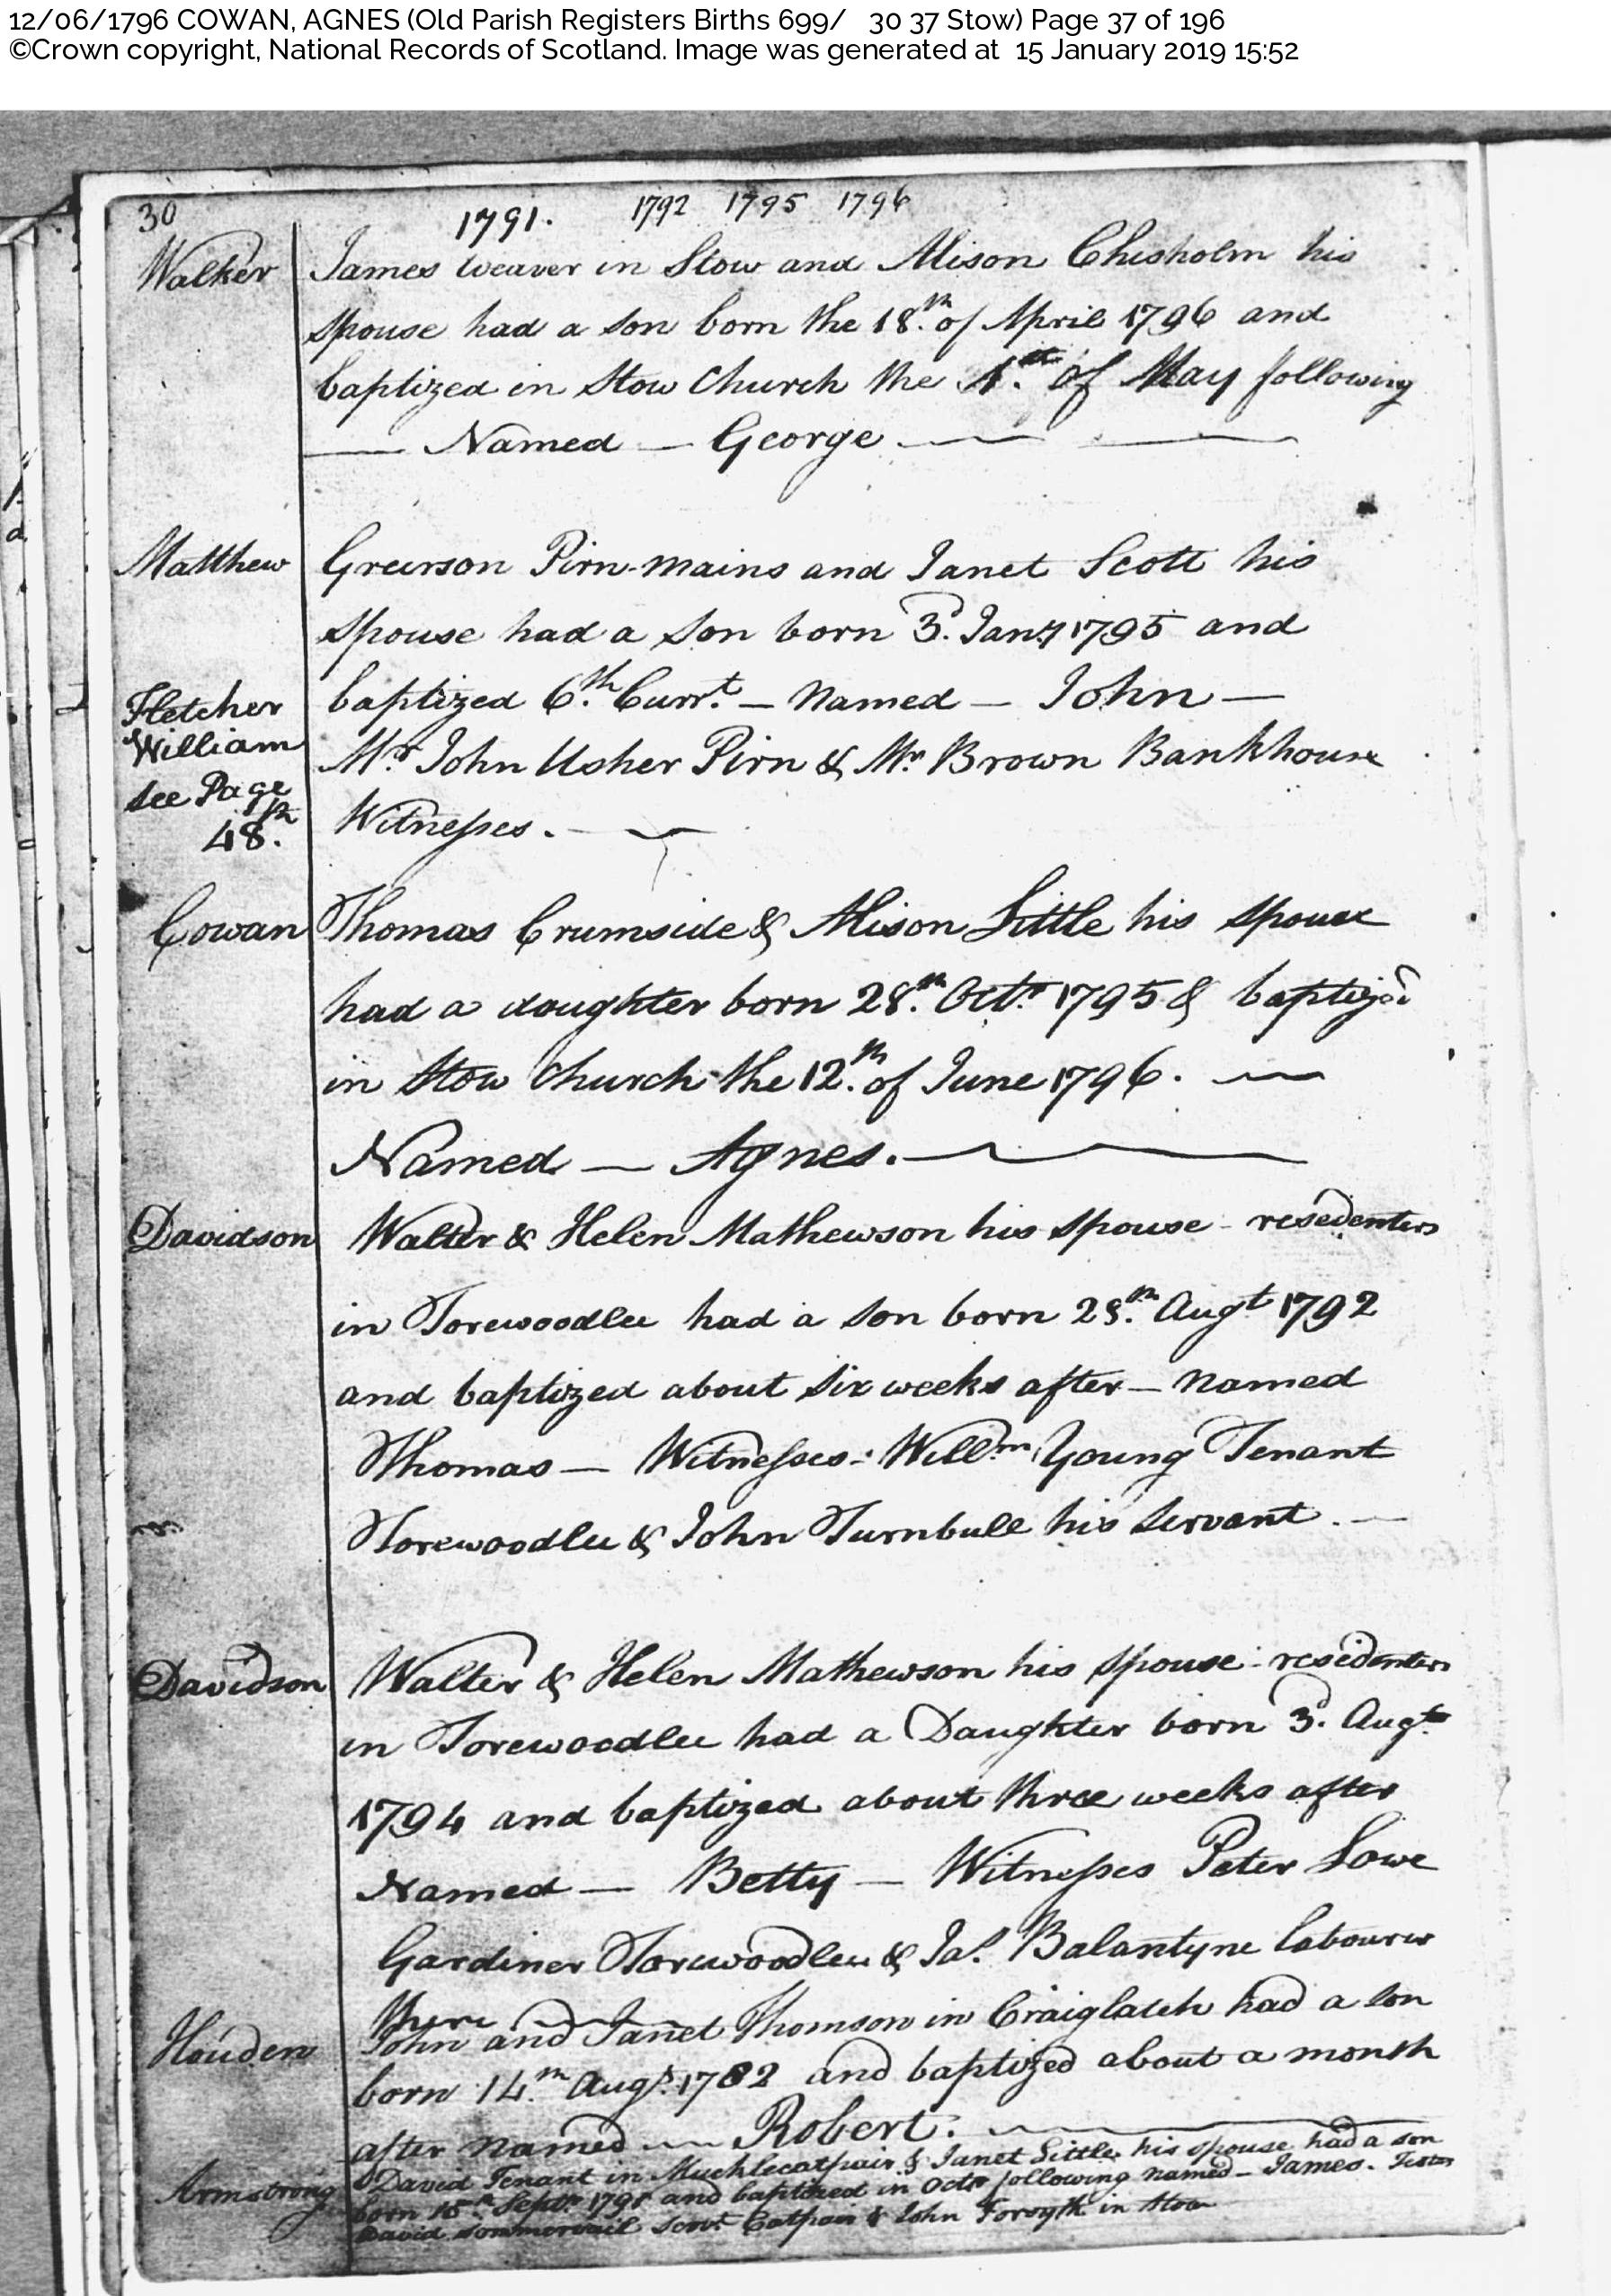 12/06/1796 COWAN, AGNES (Old Parish Registers Births 699/ 30 37 Stow) Page 37 of 196
©Crown copyright, National Records of Scotland. Image was generated at 15 January 2019 15:52
30 1791. 1792 1795 1796
Walker James Weaver in Stow and Alison Chisholm his
spouse had a son born the 18.th of April 1796 and
baptized in Stow Church the 1.st of May following
— Named — George —
Matthew Greirson Pirn-mains and Janet Scott his
spouse had a Son born 3.d Jany 1795 and
baptized 6.th Curr.t — Named — John —
Fletcher
William
see Page
48.th
Mr. John Usher Pirn & Mr. Brown Bankhouse
Witnesses. —
Cowan Thomas Crumside & Alison Little his spouse
had a daughter born 28.th Oct.r 1795 & baptized
in Stow Church the 12.th of June 1796. —
Named — Agnes. —
Davidson Walter & Helen Mathewson his spouse - resedenters
in Torewoodlee had a son born 28.th Augt 1792
and baptized about six weeks after — Named
Thomas — Witnesses - Will.m Young Tenant
Torewoodlee & John Turnbull his servant. —
Davidson Walter & Helen Mathewson his spouse - resedenters
in Torewoodlee had a Daughter born 3.d Augt.
1794 and baptized about three weeks after
Named — Betty — Witnesses Peter Lowe
Gardiner Torewoodlee & Jas. Balantyne labourer
there
Houden John and Janet Thomson in Craiglatch had a son
born 14.th Augt. 1782 and baptized about a month
after named — Robert. —
Armstrong David Tenant in Muchlecatpair & Janet Little his spouse had a son
born 15.th Septr. 1791 and baptized in Octr following named — James.
David Sommervail servt. Catpair & John Forsyth in Stow